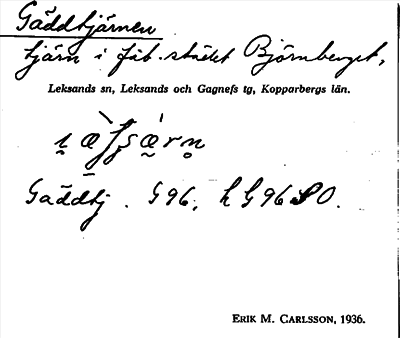 Gäddtjärnen
tjärn i fäb.stället Björnberget,
Leksands sn, Leksands och Gagnefs tg, Kopparbergs län.
Gäddtj. G96; h G96 SO.
ERIK M. CARLSSON, 1936.